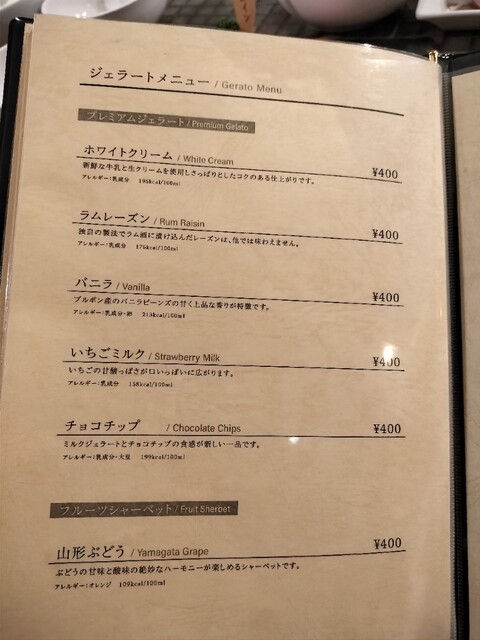 ジェラートメニュー / Gerato Menu
プレミアムジェラート / Premium Gelato
ホワイトクリーム / White Cream ¥400
新鮮な牛乳と生クリームを使用しさっぱりとしたコクのある仕上がりです。
アレルギー：乳成分 196kcal/100ml
ラムレーズン / Rum Raisin ¥400
独自の製法でラム酒に漬け込んだレーズンは、他では味わえません。
アレルギー：乳成分 175kcal/100ml
バニラ / Vanilla ¥400
ブルボン産のバニラビーンズの甘く上品な香りが特徴です。
アレルギー：乳成分・卵 213kcal/100ml
いちごミルク / Strawberry Milk ¥400
いちごの甘酸っぱさが口いっぱいに広がります。
アレルギー：乳成分 158kcal/100ml
チョコチップ / Chocolate Chips ¥400
ミルクジェラートとチョコチップの食感が新しい一品です。
アレルギー：乳成分・大豆 199kcal/100ml
フルーツシャーベット / Fruit Sherbet
山形ぶどう / Yamagata Grape ¥400
ぶどうの甘味と酸味の絶妙なハーモニーが楽しめるシャーベットです。
アレルギー：オレンジ 109kcal/100ml